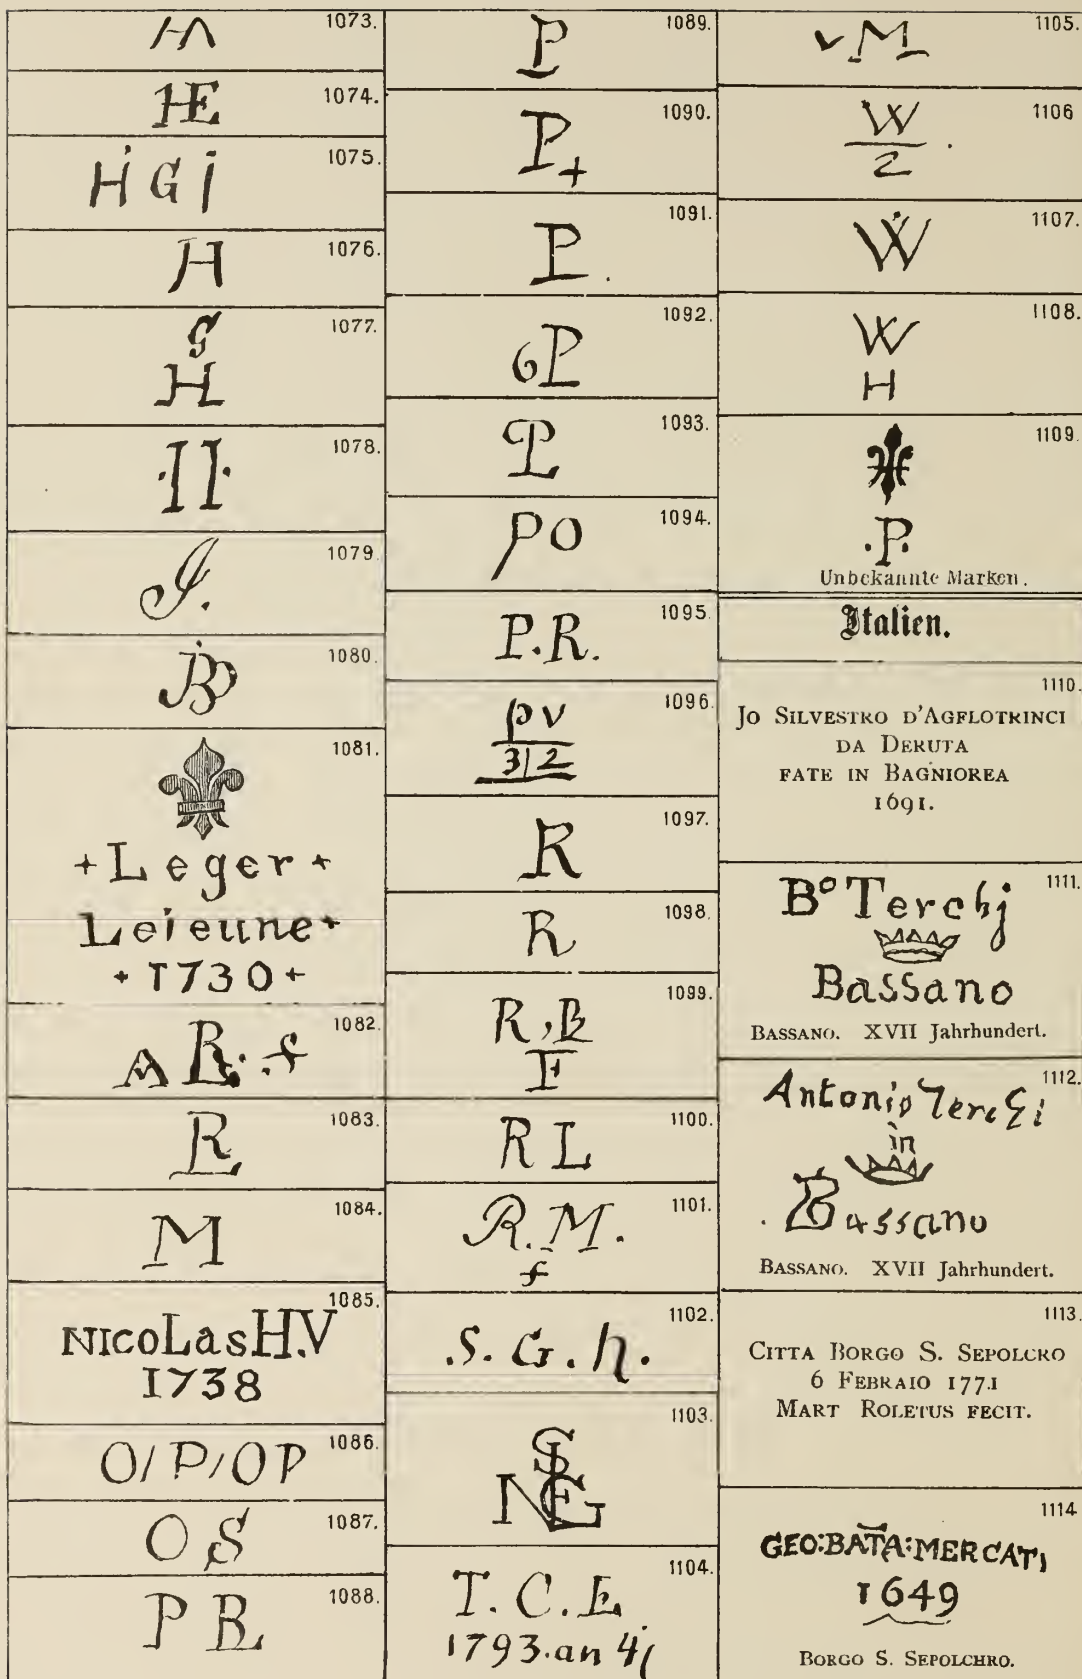 1073.
HA
1074.
HE
1075.
H G i
1076.
H
1077.
G
H
1078.
·II·
1079.
J.
1080.
JBP
1081.
+ Leger +
Leieune +
+ 1730 +
1082.
A R: f
1083.
R
1084.
M
1085.
NICOLasH.V
1738
1086.
O/P/OP
1087.
O S
1088.
P R
1089.
P
1090.
P+
1091.
P.
1092.
6P
1093.
P
1094.
PO
1095.
P.R.
1096.
pv
3/2
1097.
R
1098.
R
1099.
R,B
F
1100.
R L
1101.
R.M.
f
1102.
.S. G. h.
1103.
1104.
T. C. E
1793. an 4
1105.
v M
1106
W
2
.
1107.
W
1108.
W
H
1109.
.P.
Unbekannte Marken.
Italien.
1110.
Jo Silvestro d'Agflotrinci
da Deruta
fate in Bagniorea
1691.
1111.
Bº Terchj
Bassano
Bassano. XVII Jahrhundert.
1112.
Antonio Terchi
in
Bassano
Bassano. XVII Jahrhundert.
1113.
Citta Borgo S. Sepolcro
6 Febraio 1771
Mart Roletus fecit.
1114
GEO:BATA:MERCATI
1649
Borgo S. Sepolchro.